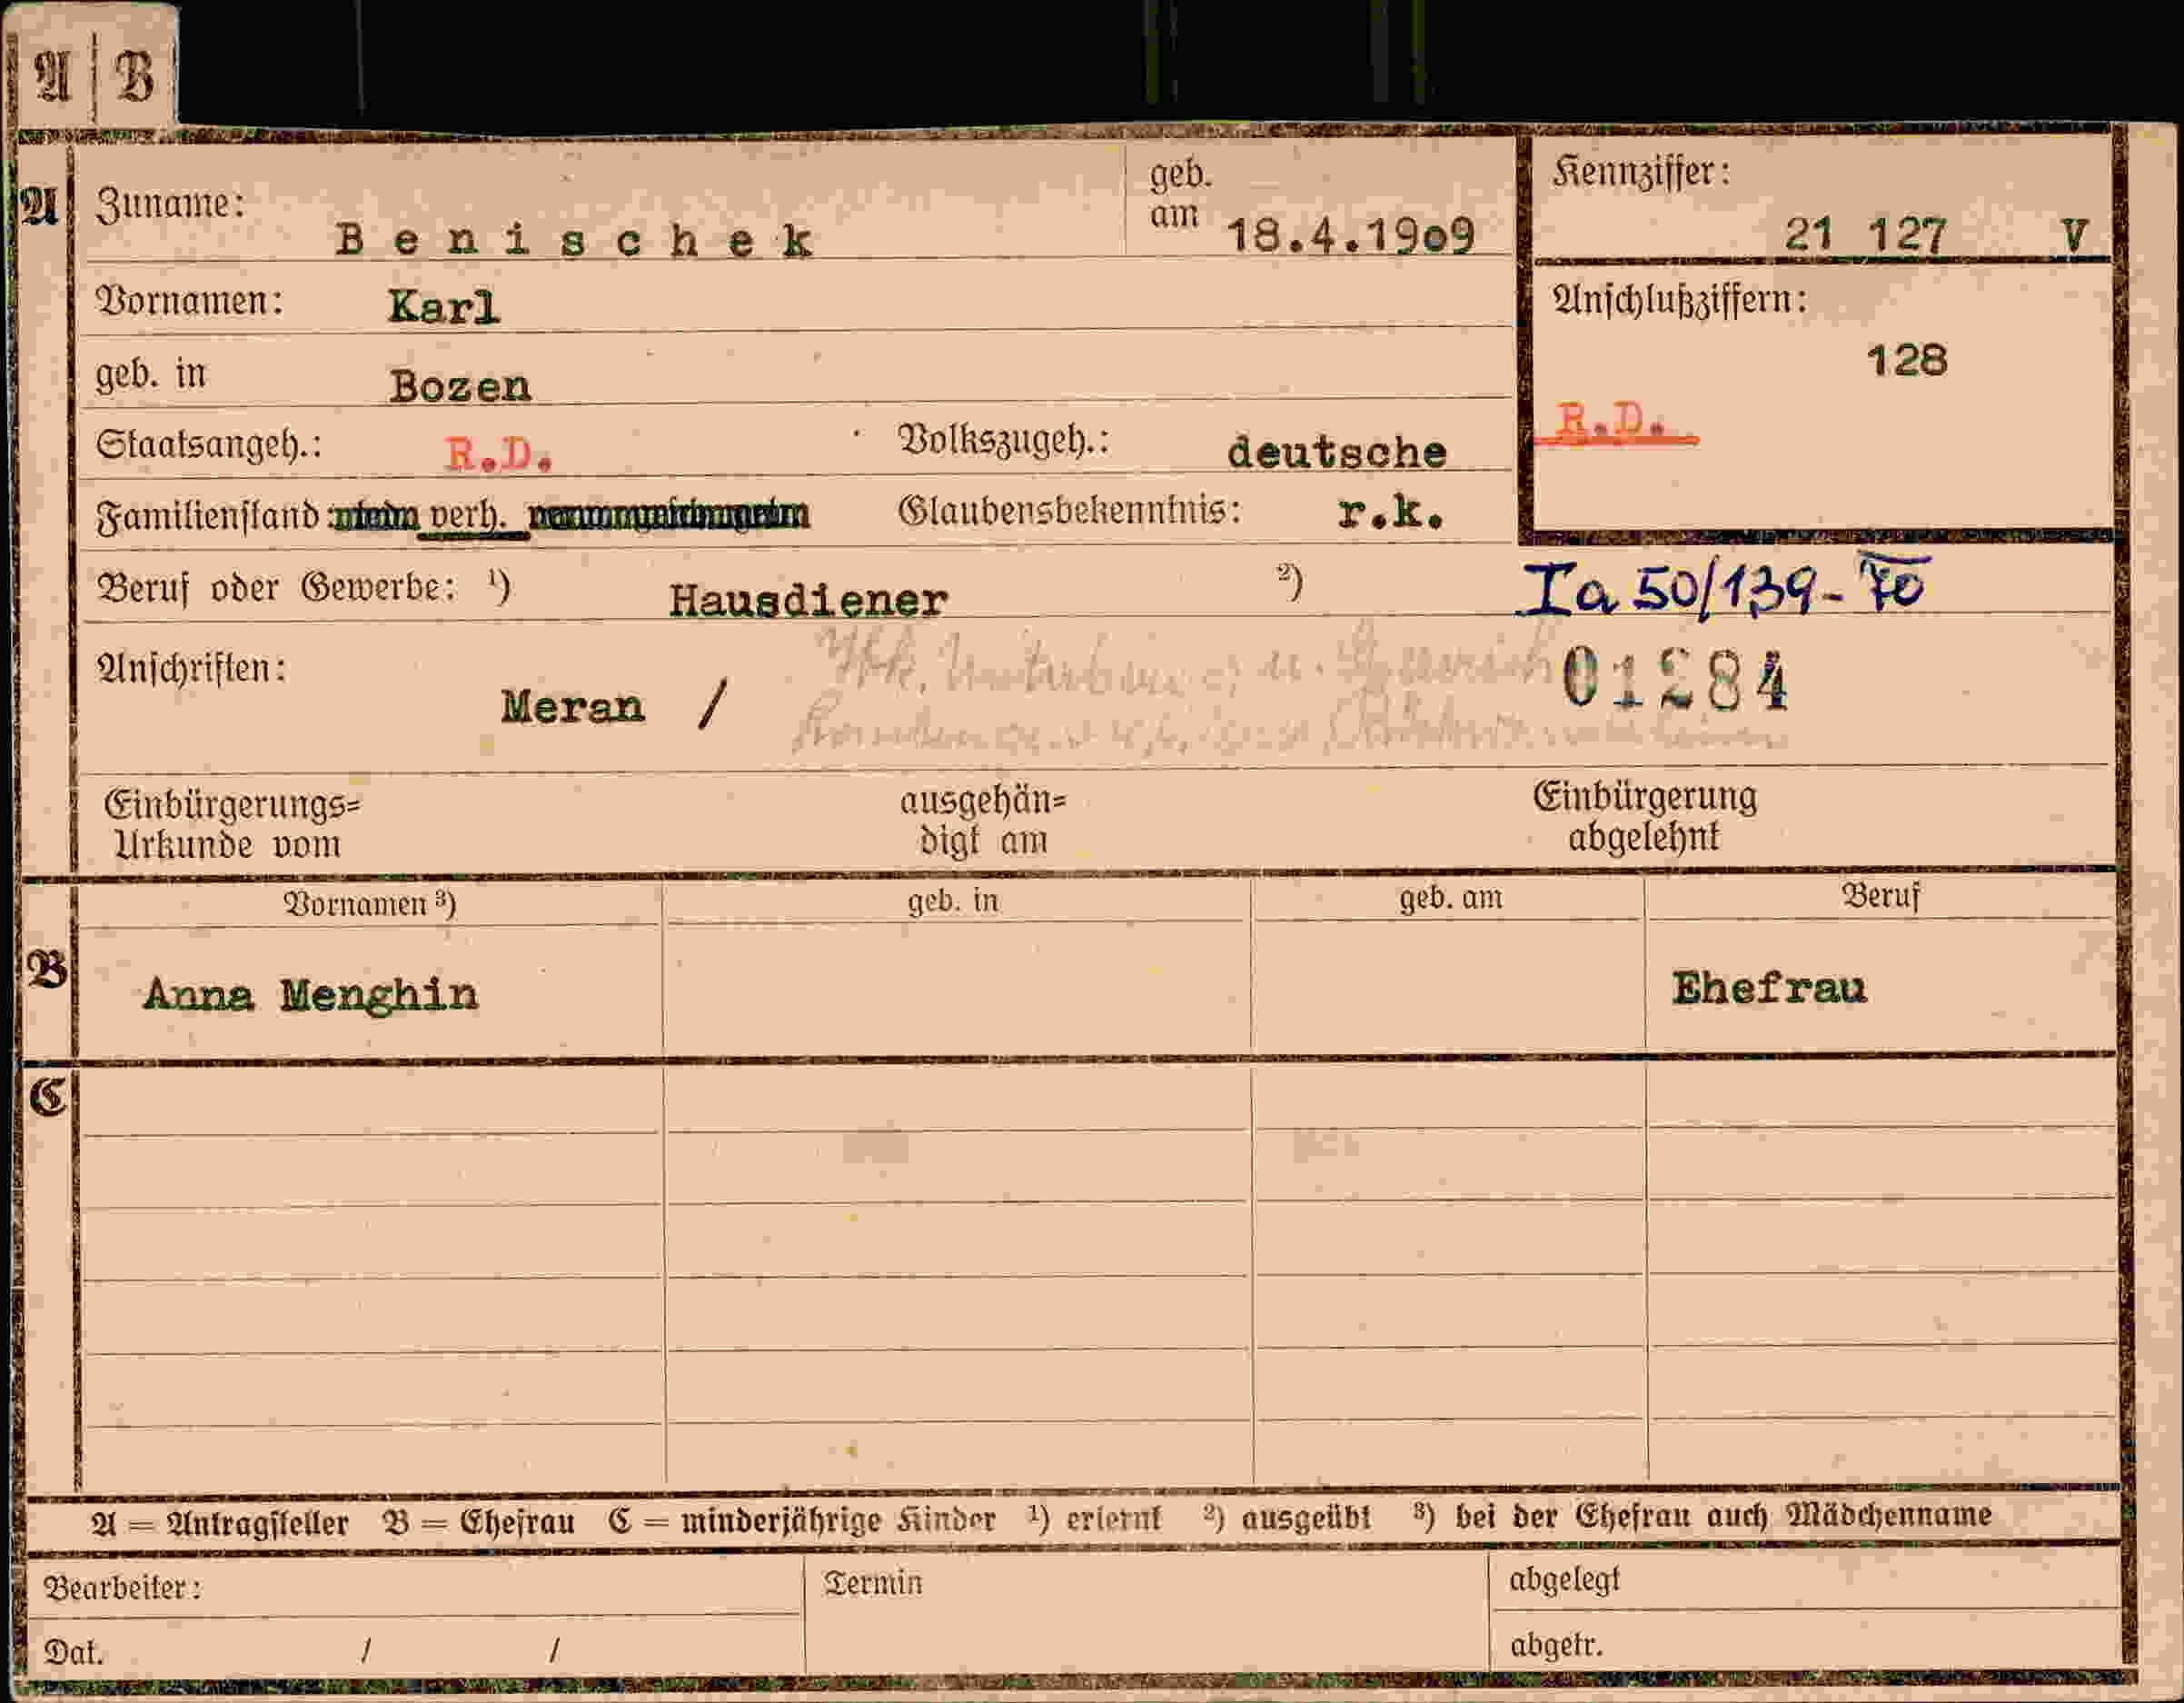 A B
A Zuname: Benischek geb. am 18.4.1909
Kennziffer: 21 127 V
Vornamen: Karl
Anschlußziffern: 128
geb. in Bozen
Staatsangeh.: R.D. Volkszugeh.: deutsche
R.D.
Familienstand: verh. Glaubensbekenntnis: r.k.
Beruf oder Gewerbe: ¹) Hausdiener ²) Ia 50/139-70
Anschriften: Meran / 01284
Einbürgerungs=
Urkunde vom
ausgehän=
digt am
Einbürgerung
abgelehnt
Vornamen ³) geb. in geb. am Beruf
B Anna Menghin Ehefrau
C
A = Antragsteller B = Ehefrau C = minderjährige Kinder ¹) erlernt ²) ausgeübt ³) bei der Ehefrau auch Mädchenname
Bearbeiter: Termin abgelegt
Dat. / / abgetr.